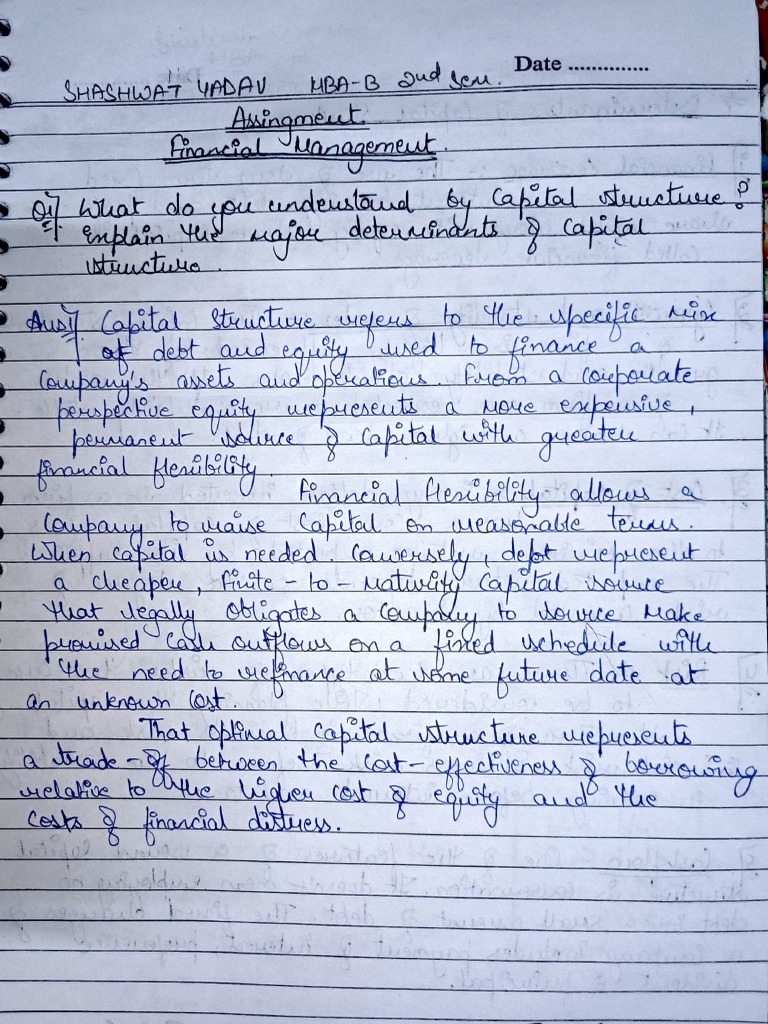 Date ..............
SHASHWAT YADAV MBA-B 2nd Sem.
Assingment.
Financial Management.
Q1] What do you understand by Capital structure?
Explain the major determinants of Capital
structure.
Ans] Capital Structure refers to the specific mix
of debt and equity used to finance a
Company's assets and operations. From a corporate
perspective equity represents a more expensive,
permanent source of Capital with greater
financial flexibility.
Financial flexibility allows a
Company to raise Capital on reasonable terms.
When capital is needed. Conversely, debt represent
a cheaper, finite-to-maturity Capital source
that legally obligates a Company to source make
promised cash outflows on a fixed schedule with
the need to refinance at some future date at
an unknown cost.
That optimal capital structure represents
a trade-of between the cost-effectiveness of borrowing
relative to the higher cost of equity and the
costs of financial distress.